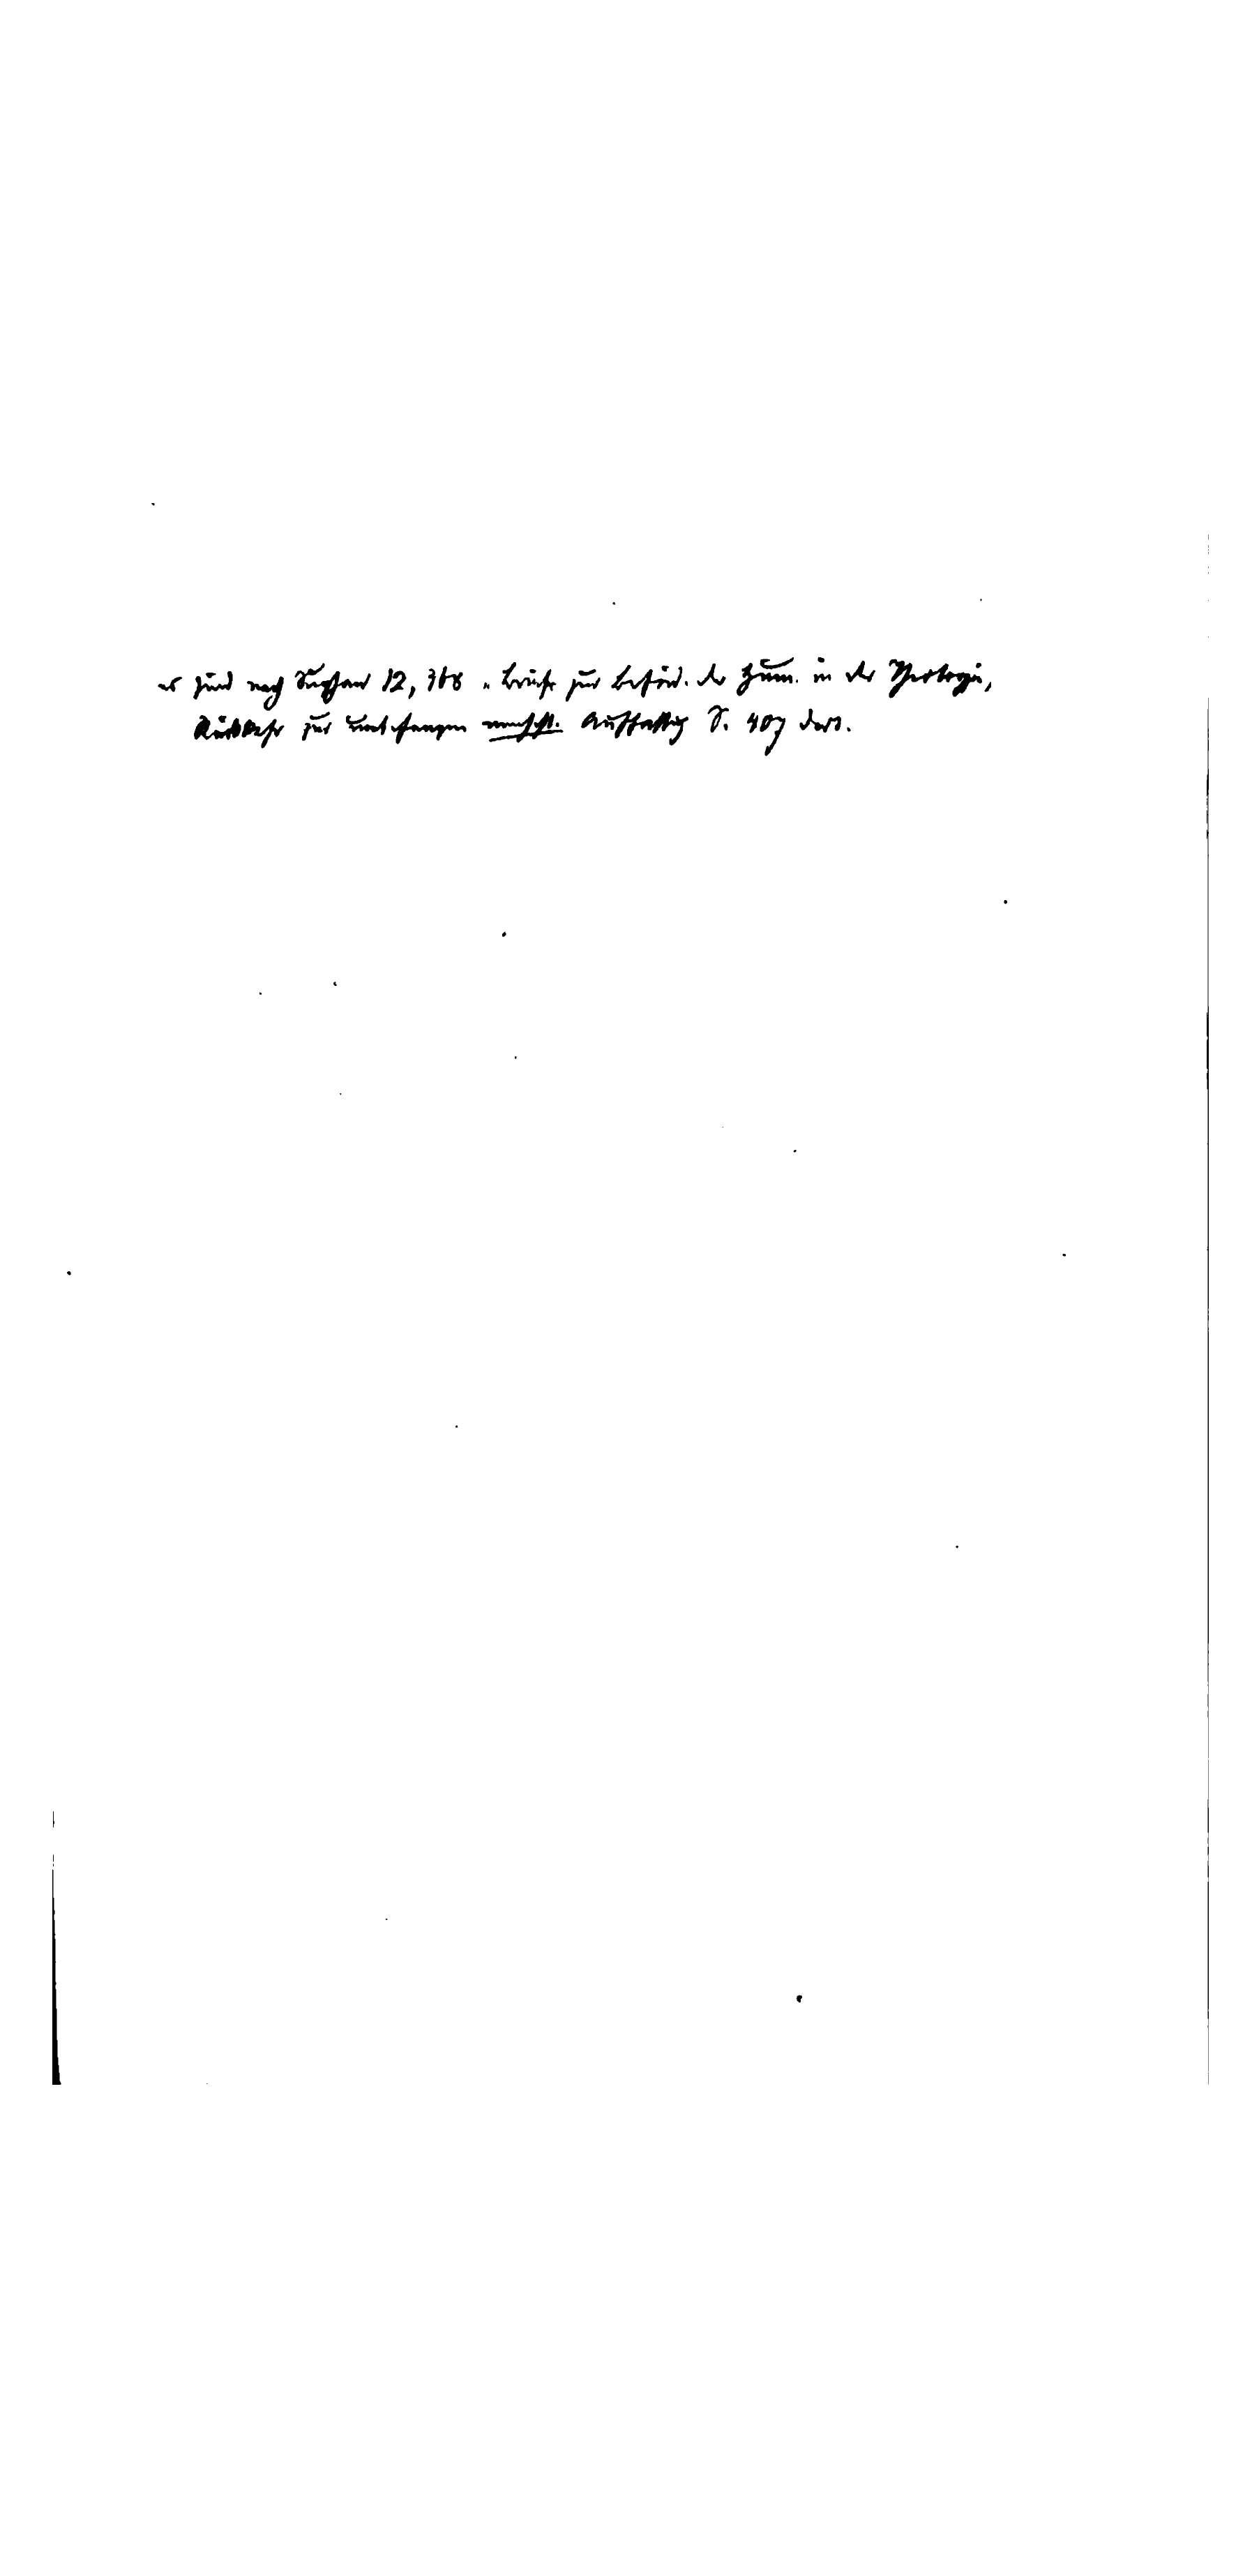 es sind nach Suphan 12, 368 „Briefe zur Beförd. der Hum. in der Theologie,
Rückkehr zur unbefangen menschl. Auffassg S. 407 ders.